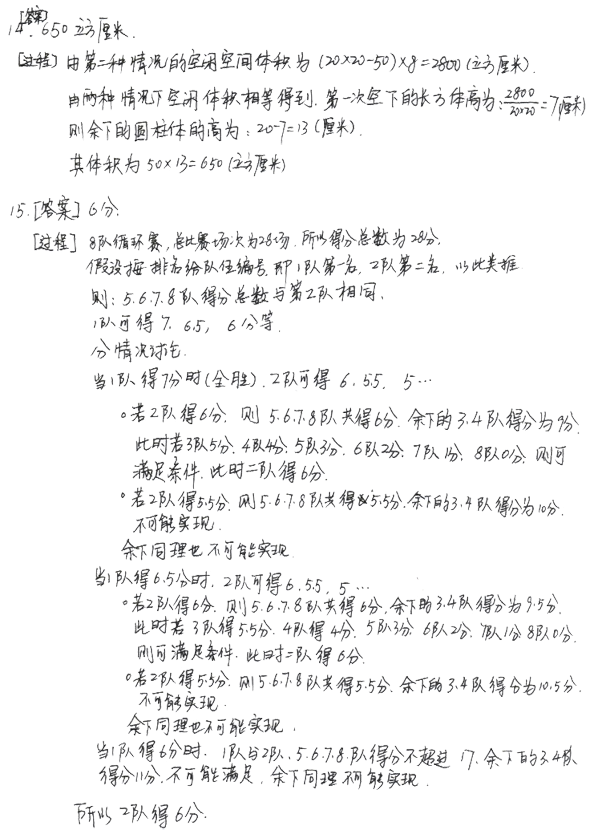 [答案]
14. 650 立方厘米.
[过程] 由第二种情况的空闲空间体积为 (20×20-50)×8=2800 (立方厘米).
由两种情况下空闲体积相等得到. 第一次空下的长方体高为: 2800/20×20=7(厘米)
则余下的圆柱体的高为: 20-7=13 (厘米).
其体积为 50×13=650 (立方厘米)
15. [答案] 6分.
[过程] 8队循环赛, 总比赛场次为28场. 所以得分总数为28分.
假设按排名给队伍编号, 即1队第一名, 2队第二名, 以此类推
则: 5.6.7.8队得分总数与第2队相同.
1队可得7. 6.5, 6分等.
分情况讨论.
当1队得7分时(全胜). 2队可得 6. 5.5. 5…
○若2队得6分. 则 5.6.7.8队共得6分. 余下的3.4队得分为9分.
此时若3队5分. 4队4分. 5队3分. 6队2分. 7队1分. 8队0分. 则可
满足条件. 此时二队得6分.
○若2队得5.5分. 则5.6.7.8队共得5.5分. 余下的3.4队得分为10分.
不可能实现.
余下同理也不可能实现.
当1队得6.5分时. 2队可得6. 5.5. 5…
○若2队得6分. 则5.6.7.8队共得6分. 余下的3.4队得分为9.5分.
此时若3队得5.5分. 4队得4分. 5队3分. 6队2分. 7队1分 8队0分.
则可满足条件. 此时二队得6分.
○若2队得5.5分. 则5.6.7.8队共得5.5分. 余下的3.4队得分为10.5分.
不可能实现.
余下同理也不可能实现.
当1队得6分时. 1队与2队. 5.6.7.8.队得分不超过 17. 余下的3.4队
得分11分. 不可能满足. 余下同理不可能实现.
所以2队得6分.